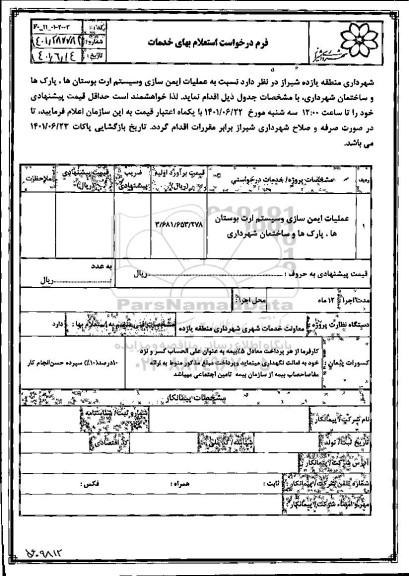 فرم درخواست استعلام بهای خدمات
شماره:
تاریخ:
شهرداری منطقه یازده شیراز در نظر دارد نسبت به عملیات ایمن سازی وسیستم ارت بوستان ها ، پارک ها
و ساختمان شهرداری، با مشخصات جدول ذیل اقدام نماید. لذا خواهشمند است حداقل قیمت پیشنهادی
خود را تا ساعت ۱۳:۰۰ سه شنبه مورخ ۱۴۰۱/۰۶/۲۲ با یکماه اعتبار قیمت به این سازمان اعلام فرمایید، تا
در صورت صرفه و صلاح شهرداری شیراز برابر مقررات اقدام گردد. تاریخ بازگشایی پاکات ۱۴۰۱/۰۶/۲۳
می باشد.
ردیف مشخصات پروژه/ خدمات درخواستی قیمت برآورد اولیه (ریال) ضریب پیشنهادی قیمت پیشنهادی (ریال) ملاحظات
۱ عملیات ایمن سازی وسیستم ارت بوستان ۳/۶۸۱/۶۵۳/۲۷۸
ها ، پارک ها و ساختمان شهرداری
قیمت پیشنهادی به حروف : ریال به عدد ریال
مدت اجرا: ۱۲ ماه محل اجرا:
دستگاه نظارت پروژه: معاونت خدمات شهری شهرداری منطقه یازده دارد
کسورات پیمان: کارفرما از هر پرداخت معادل ۵٪بیمه به عنوان علی الحساب کسر و نزد
خود به امانت نگهداری مینماید وپرداخت مبلغ مذکور منوط به ارائه
مفاصاحساب بیمه از سازمان بیمه تامین اجتماعی میباشد
۱۰درصد(۱۰٪) سپرده حسن انجام کار
مشخصات پیمانکار
نام شرکت/ پیمانکار:
تاریخ ثبت/ تولد:
کد اقتصادی:
آدرس شرکت/ پیمانکار:
شماره تلفن شرکت/ پیمانکار: ثابت : همراه : فکس :
مهر و امضاء شرکت/ پیمانکار:
ParsNamadData